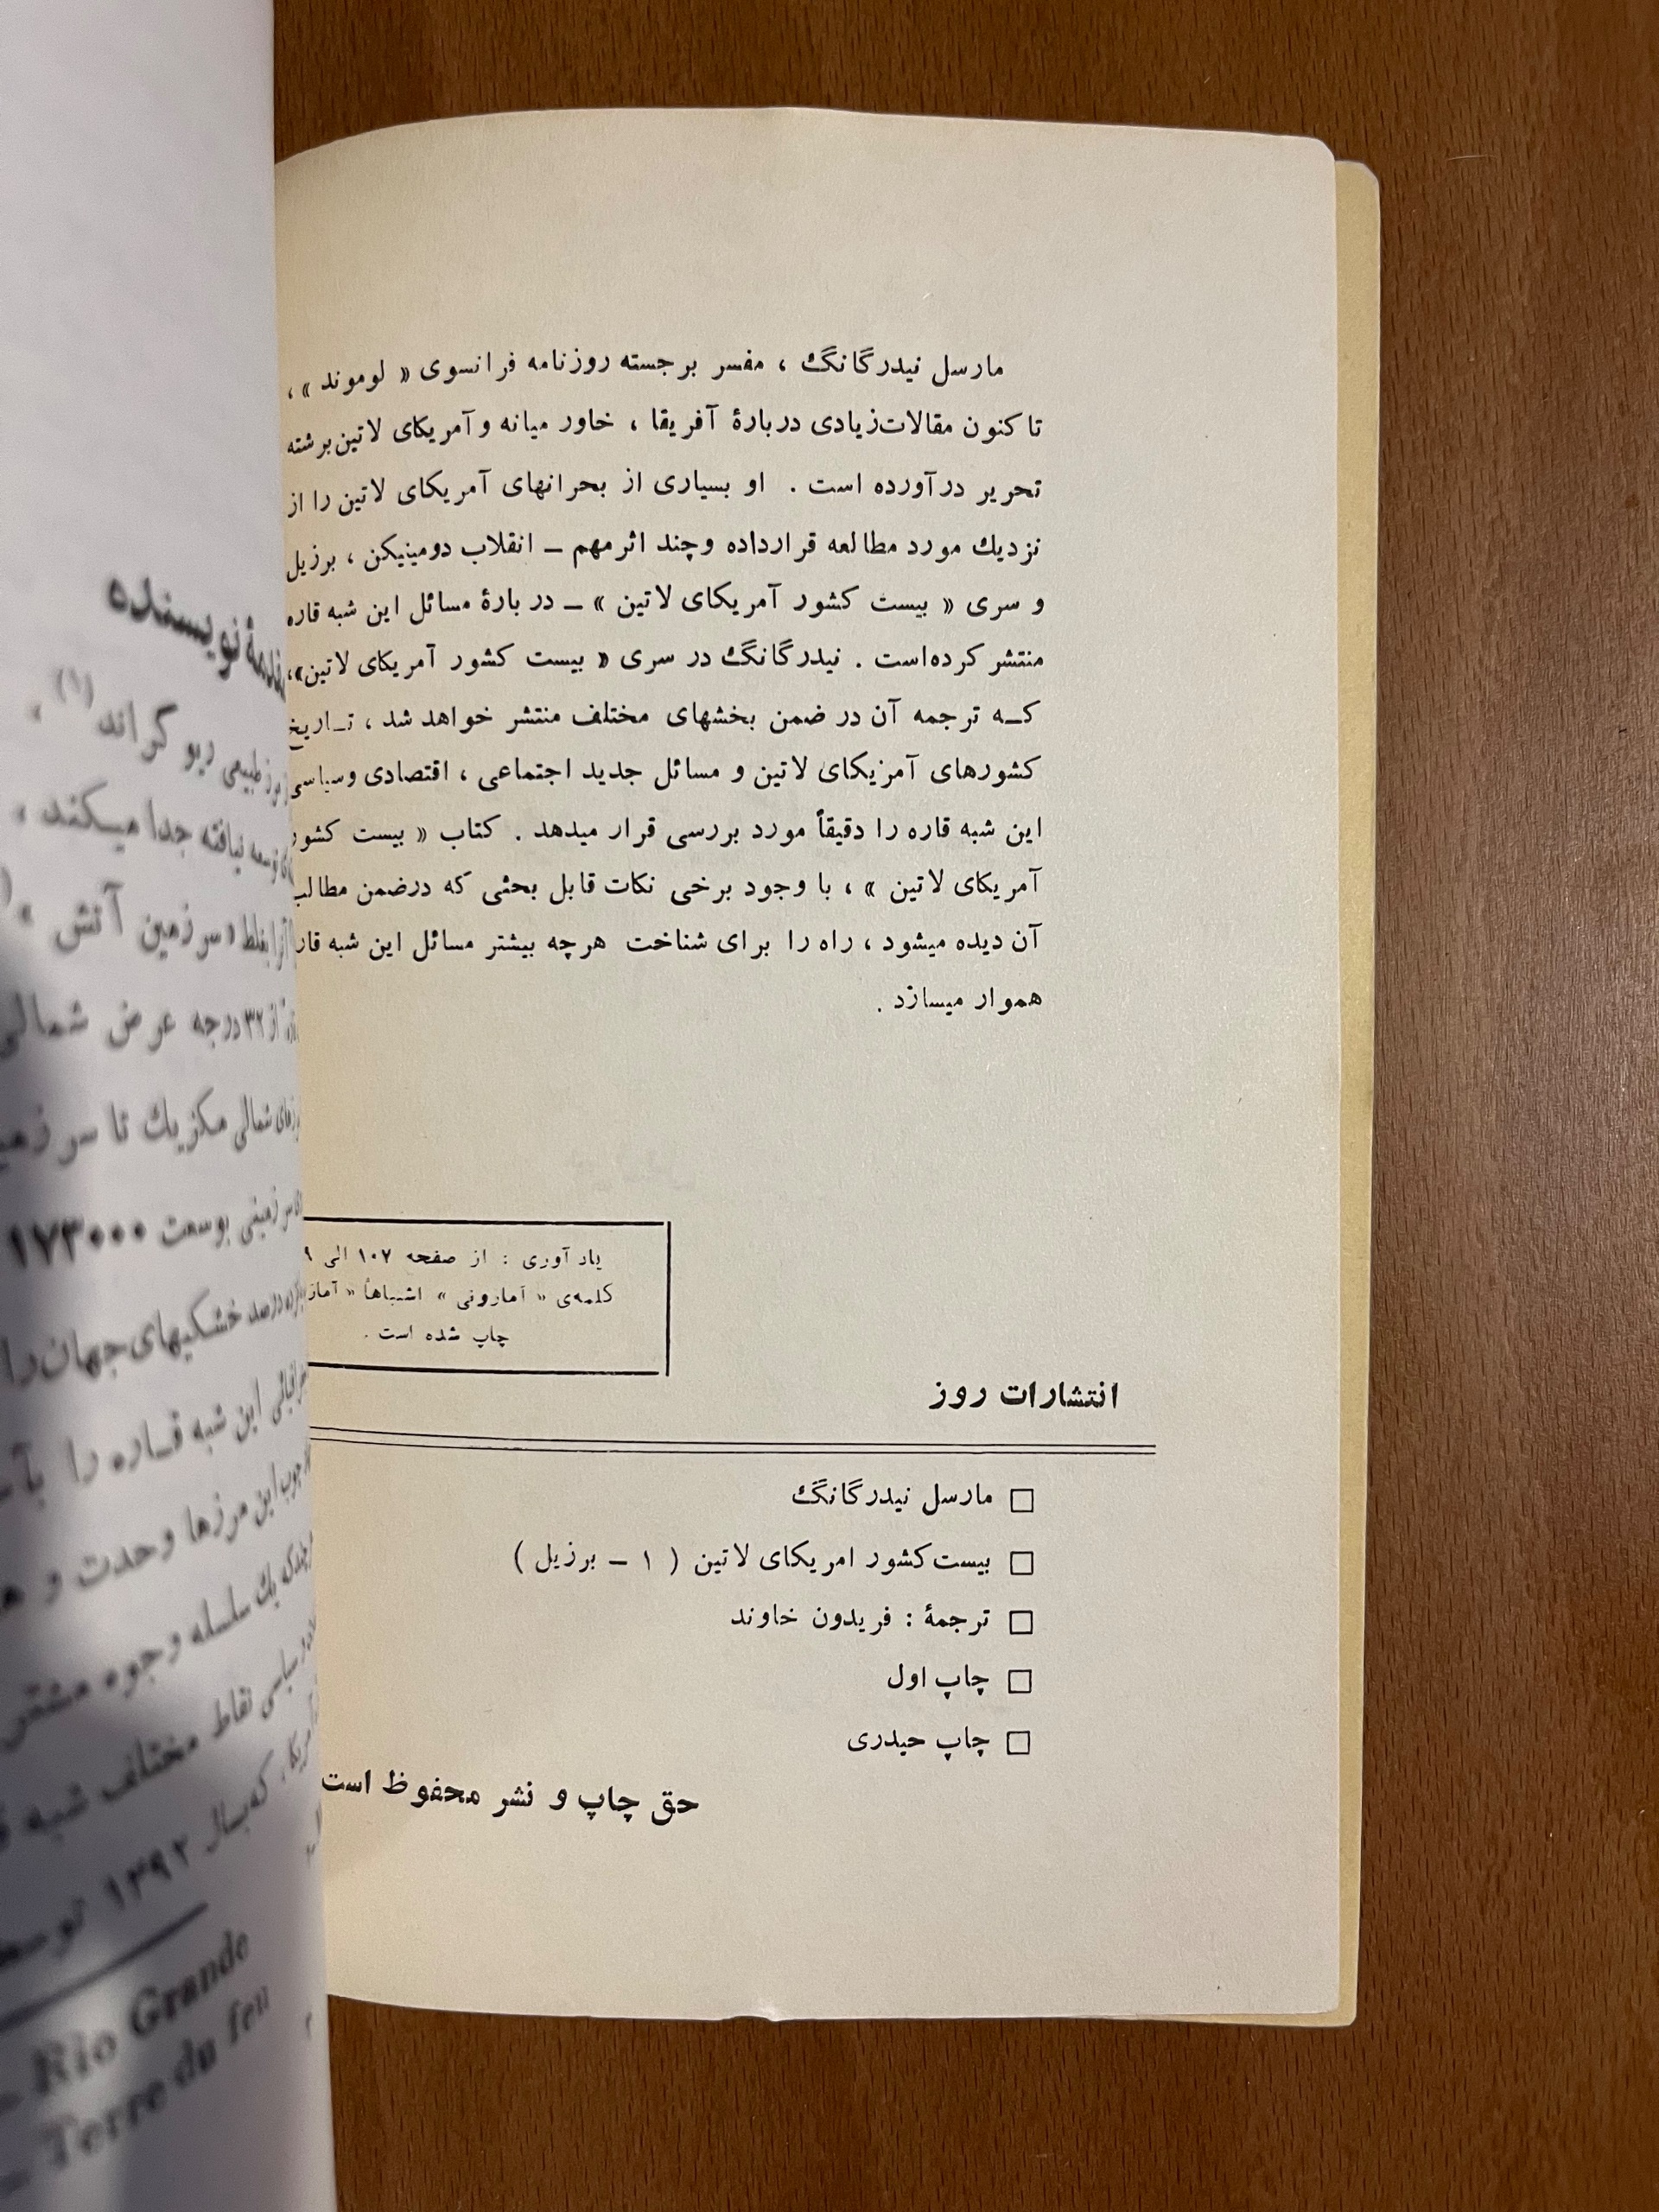 مارسل نیدرگانگ ، مفسر برجسته روزنامه فرانسوی « لوموند » ،
تاکنون مقالات زیادی دربارهٔ آفریقا ، خاور میانه و آمریکای لاتین برشته
تحریر درآورده است . او بسیاری از بحرانهای آمریکای لاتین را از
نزدیك مورد مطالعه قرارداده و چند اثرمهم ـ انقلاب دومینیکن ، برزیل
و سری « بیست کشور آمریکای لاتین » ـ در بارهٔ مسائل این شبه قاره
منتشر کرده‌است . نیدرگانگ در سری « بیست کشور آمریکای لاتین»،
کـه ترجمه آن در ضمن بخشهای مختلف منتشر خواهد شد ، تـاریخ
کشورهای آمزیکای لاتین و مسائل جدید اجتماعی ، اقتصادی وسیاسی
این شبه قاره را دقیقاً مورد بررسی قرار میدهد . کتاب « بیست کشور
آمریکای لاتین » ، با وجود برخی نکات قابل بحثی که درضمن مطالب
آن دیده میشود ، راه را برای شناخت هرچه بیشتر مسائل این شبه
هموار میسازد .
یادآوری : از صفحه ۱۰۷ الی
کلمه‌ی « آمازونی » اشتباهاً
چاپ شده است .
انتشارات روز
□ مارسل نیدرگانگ
□ بیست کشور امریکای لاتین ( ۱ ـ برزیل )
□ ترجمهٔ : فریدون خاوند
□ چاپ اول
□ چاپ حیدری
حق چاپ و نشر محفوظ است
نویسنده
طبیعی ریو گراند (۱) ،
توسعه نیافته جدا میـکند ،
سرزمین آتش »
از ۳۲ درجه عرض شمالی
شمالی مکزیك تا
سرزمینی بوسعت ۱۷۳۰۰۰
درصد خشکیهای جهان را
این شبه قـاره را
این مرزها وحدت و
یك سلسله وجوه
سیاسی نقاط مختلف شبه
که بسال ۱۴۹۲
Rio Grande
Terre du feu